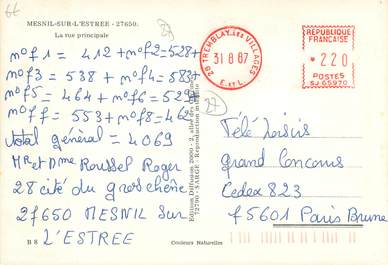 66
MESNIL-SUR-L'ESTREE - 27650.
La rue principale
27
n° f 1 = 412 + n° f 2 = 528 +
n° f 3 = 538 + n° f 4 = 583 +
n° f 5 = 464 + n° f 6 = 529
n° f f = 553 + n° f 8 = 462
total général = 4069
Mr et Dme Roussel Roger
28 cité du gros chêne
27650 MESNIL Sur
L'ESTREE
B 8
Couleurs Naturelles
Edition Diffusion 2000 - 2, allée des
72190 - SARGE - Reproduction interdite
28 TREMBLAY LES VILLAGES
31 8 87
E. et L.
REPUBLIQUE
FRANCAISE
* 220
POSTES
SJ 65970
27
Télé Loisirs
Grand Concours
Cedex 823
75601 Paris Brune